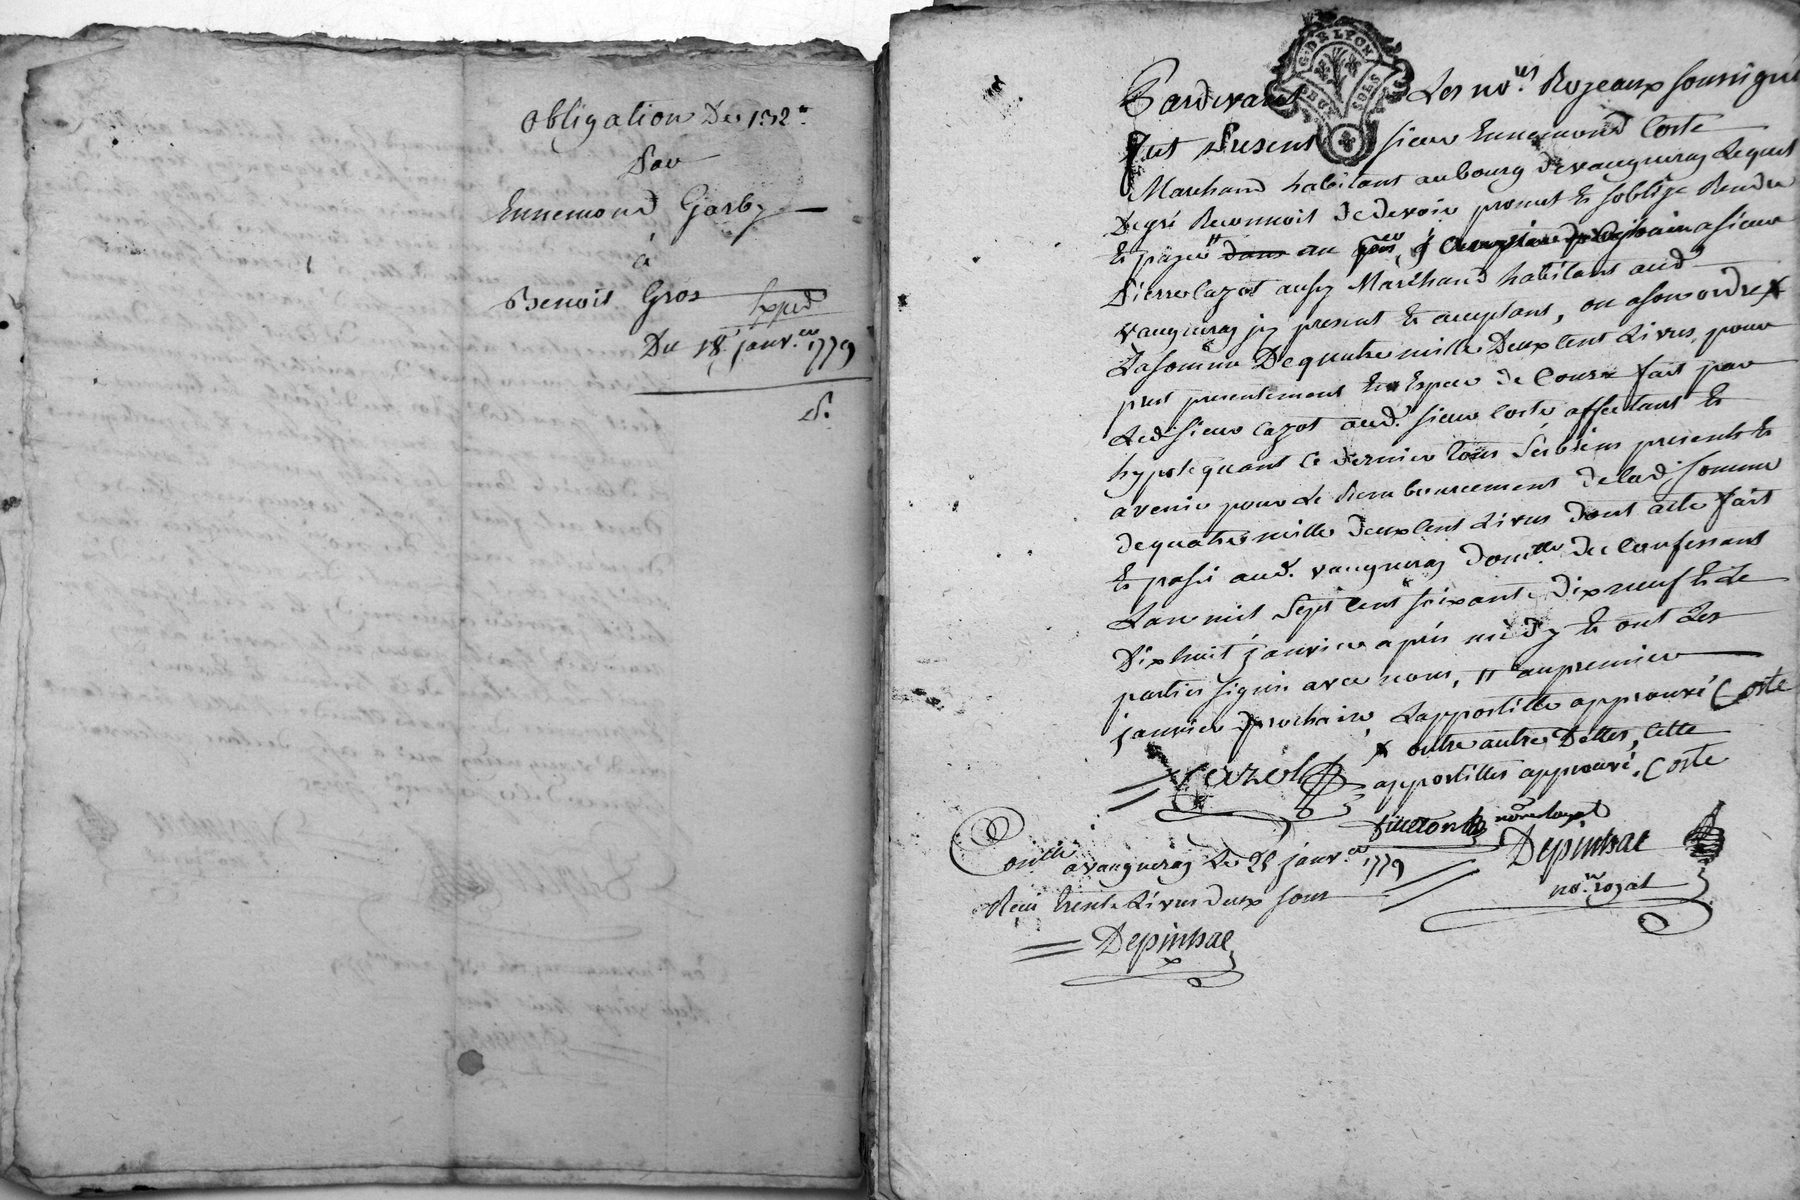 obligation De 132#
Par
Ennemond Garby
à
Benoit Gros
Exped
Du 18 janv.er 1779
G. DE LYON
DEUX SOLS
Pardevant Les no.res Royeaux soussignés
fut Present sieur Ennemond Coste
Marchand habitant au bourg de vaugneray Lequel
De gré Reconnoit de devoir promet et soblige Rendre
et payer # dans au prochain a sieur
Pierre Cazot aussy Marchand habitant aud.
vaugneray icy present et acceptant, ou a son ordre x
La somme De quatre mille Deux cent Livres, pour
pret presentement En Espece de Cours fait par
Led. sieur Cazot aud. sieur Coste affectant et
hypotequant ce dernier tous ses biens presents et
avenir pour Le Remboursement de lad. somme
de quatre mille deux cent Livres dont acte fait
et passé aud. vaugneray dom.lle du Confessant
L'an mil sept cent soixante dix neuf et Le
Dix huit janvier après midy et ont Les
parties signé avec nous, # au premier
janvier prochain, L'appostille approuvé Coste
x outre autre Dettes, Cette
appostille approuvé. Coste
Cazot
Depinhac
no.re royal
Con.lé a vaugneray Le 25 janv.er 1779
Reçu trente Livres deux sous
Depinhac